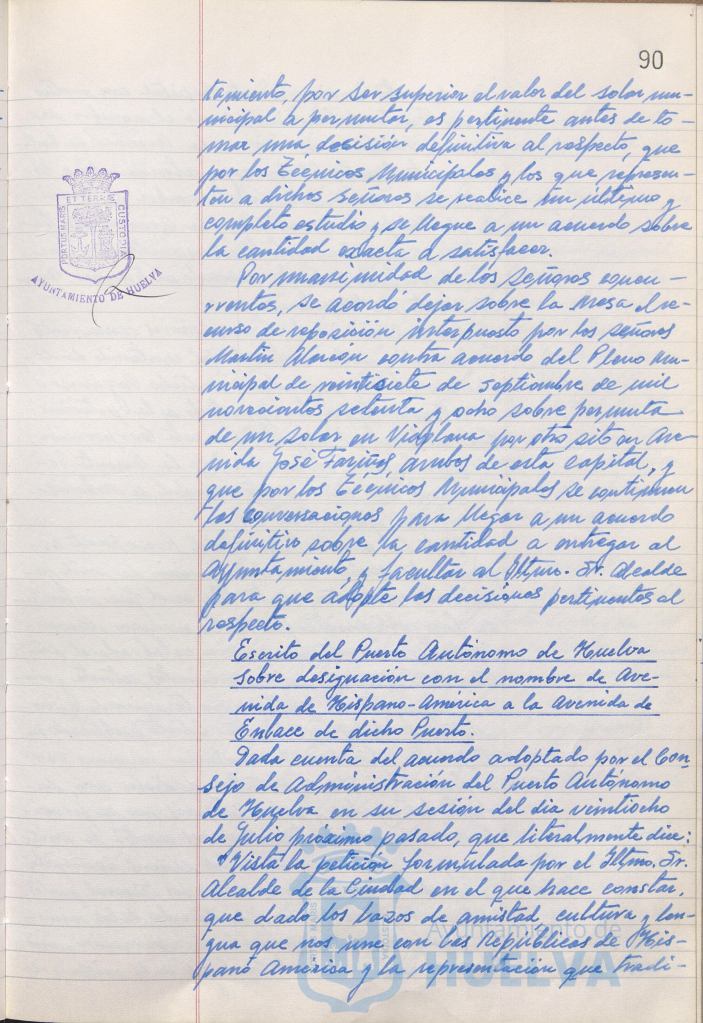 90
tamiento, por ser superior el valor del solar mu-
nicipal a permutar, es pertinente antes de to-
mar una decisión definitiva al respecto, que
por los Técnicos Municipales y los que represen-
tan a dichos señores se realice un último y
completo estudio y se llegue a un acuerdo sobre
la cantidad exacta a satisfacer.
Por unanimidad de los señores concu-
rrentes, se acordó dejar sobre la Mesa el re-
curso de reposición interpuesto por los señores
Martín Alarcón contra acuerdo del Pleno Mu-
nicipal de veintisiete de septiembre de mil
novecientos setenta y ocho sobre permuta
de un solar en Viaplana por otro sito en Ave-
nida José Fariñas, ambos de esta capital, y
que por los Técnicos Municipales se continuen
las conversaciones para llegar a un acuerdo
definitivo sobre la cantidad a entregar al
Ayuntamiento, y facultar al Iltmo. Sr. Alcalde
para que adopte las decisiones pertinentes al
respecto.
Escrito del Puerto Autónomo de Huelva
sobre designación con el nombre de Ave-
nida de Hispano-América a la Avenida de
Enlace de dicho Puerto.
Dada cuenta del acuerdo adoptado por el Con-
sejo de Administración del Puerto Autónomo
de Huelva en su sesión del día veintiocho
de Julio próximo pasado, que literalmente dice:
"Vista la petición formulada por el Iltmo. Sr.
Alcalde de la Ciudad en el que hace constar,
que dado los lazos de amistad cultura y len-
gua que nos une con las Repúblicas de His-
pano América y la representación que tradi-
PORTUS MARIS ET TERRE CUSTODIA
AYUNTAMIENTO DE HUELVA
Ayuntamiento de
HUELVA